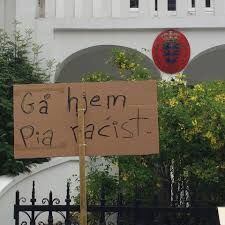 Gå hjem
Pia racist.